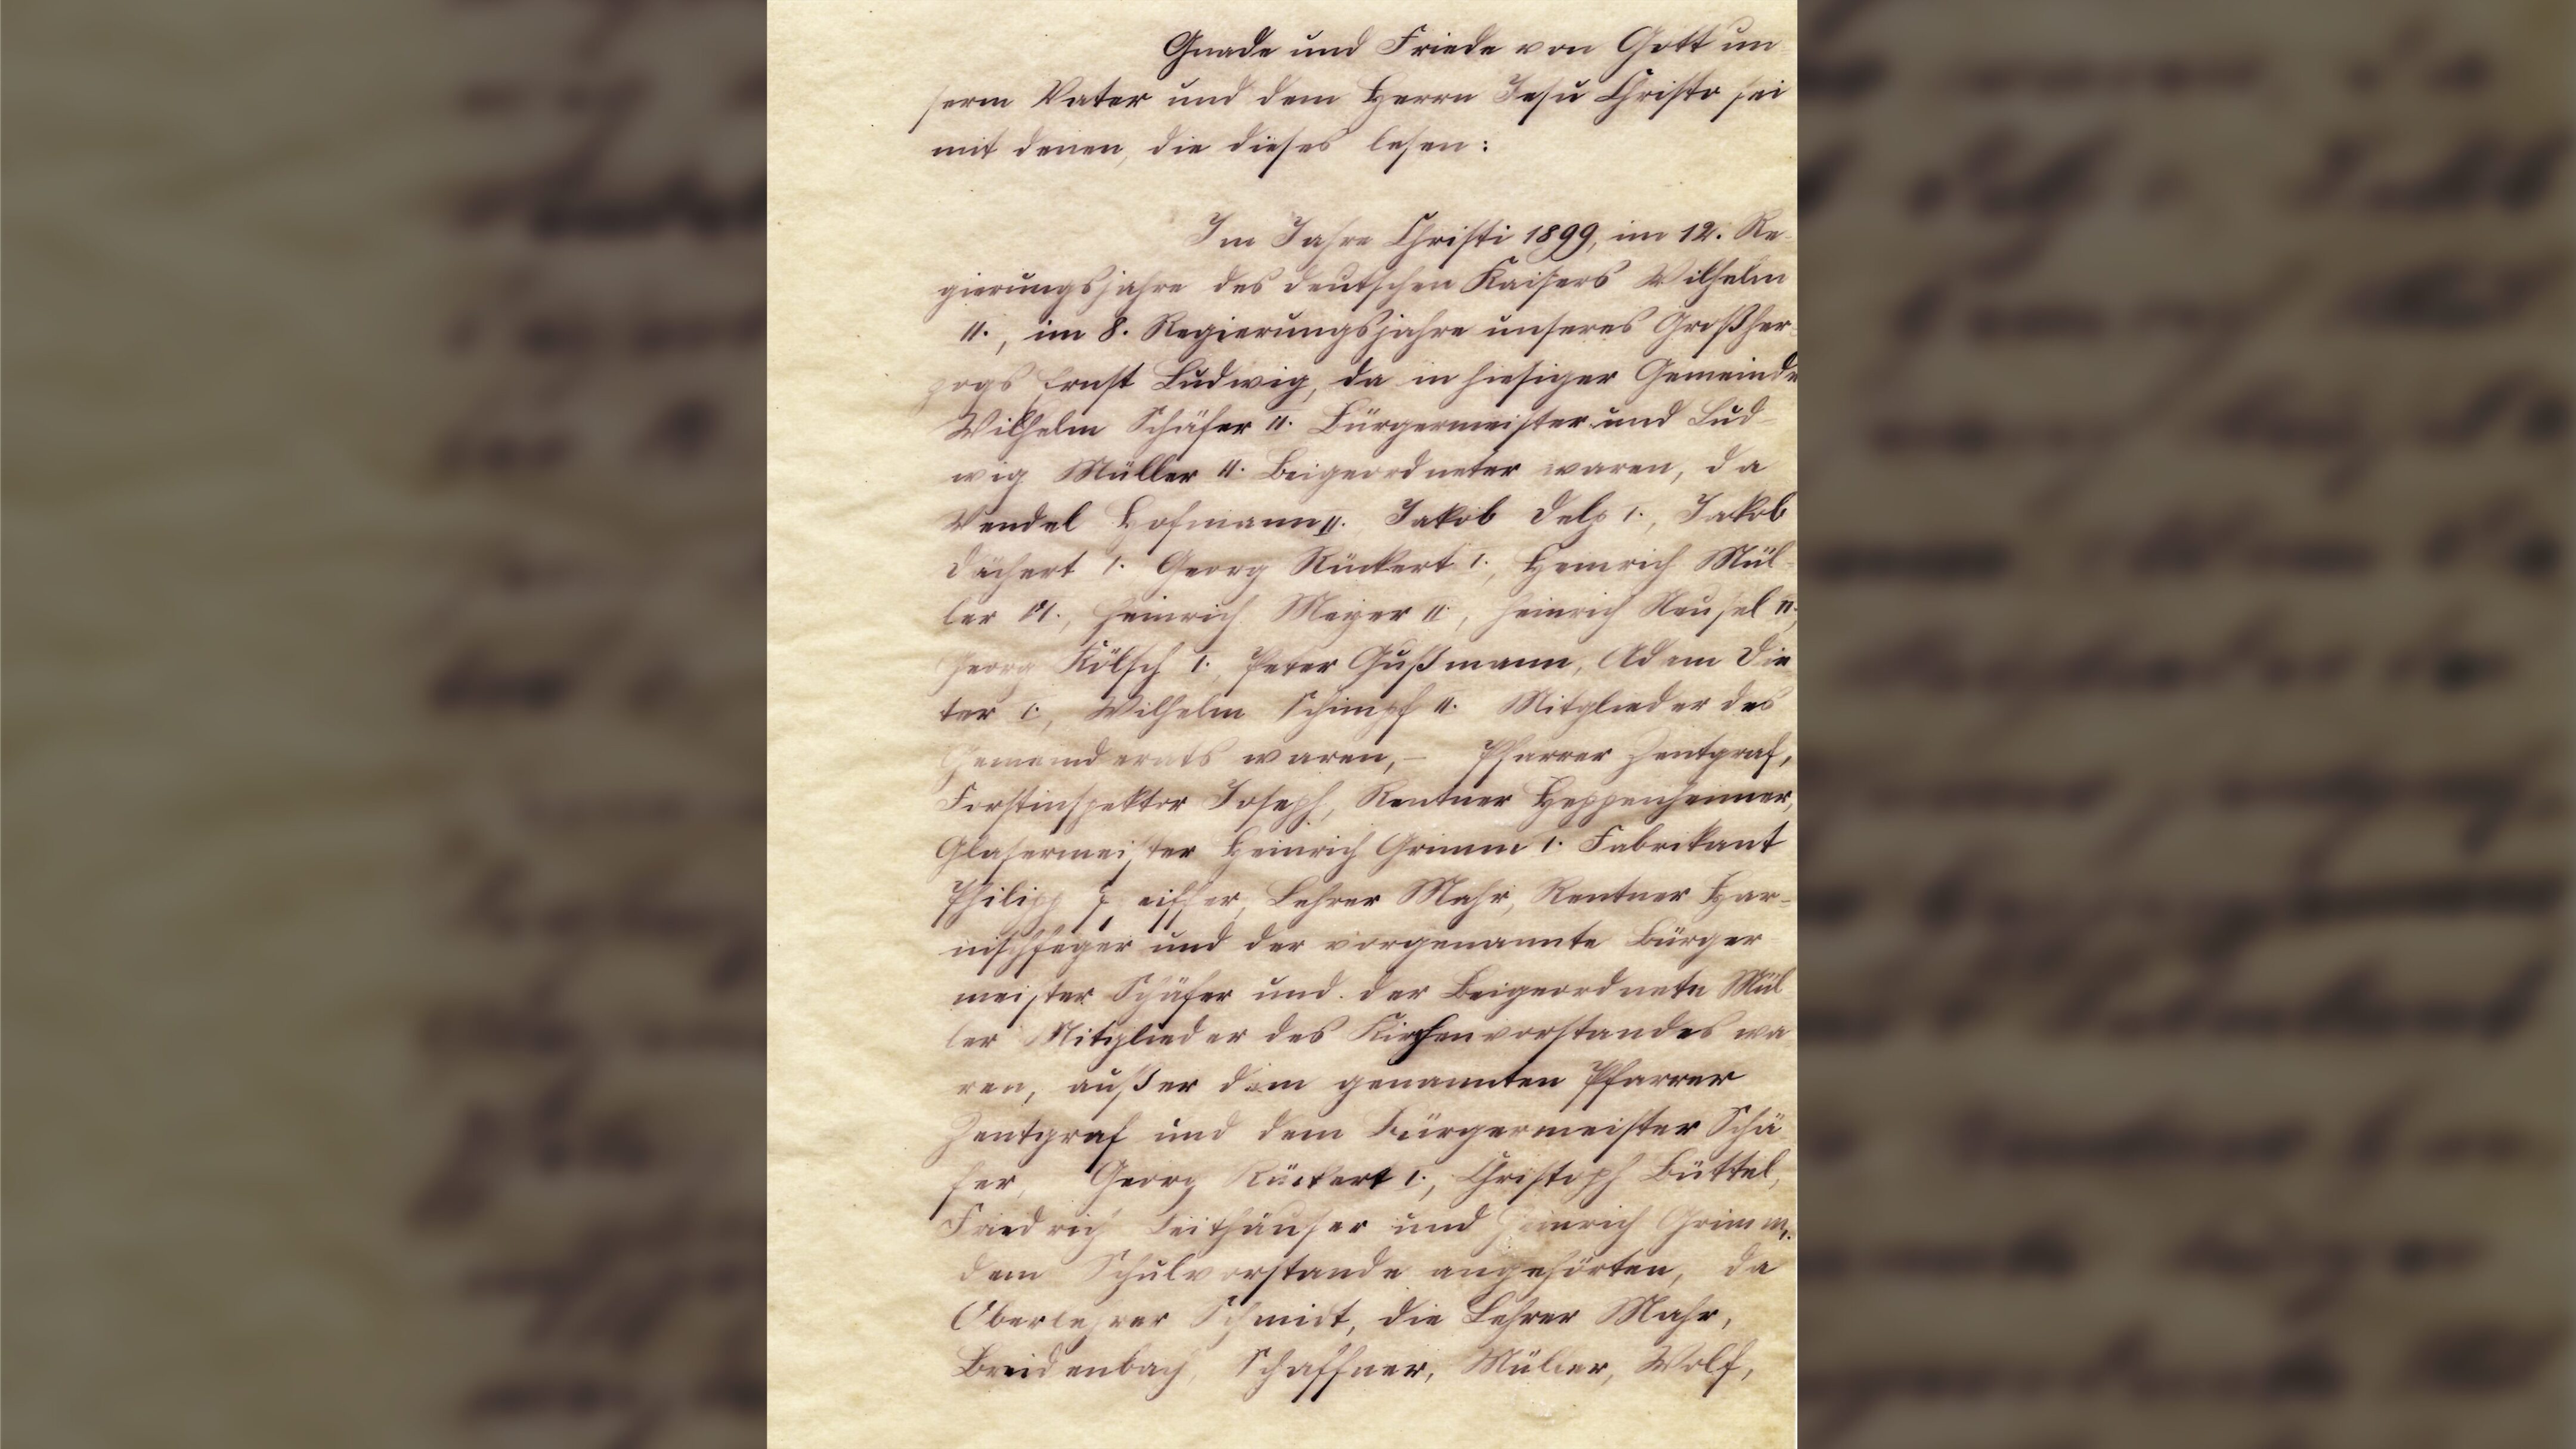 Gnade und Friede von Gott un
serm Vater und dem Herrn Jesu Christo sei
mit denen, die dieses lesen:
Im Jahre Christi 1899, im 12. Re-
gierungsjahre des deutschen Kaisers Wilhelm
II., im 8. Regierungsjahre unseres Großher-
zogs Ernst Ludwig, da in hiesiger Gemeinde
Wilhelm Schäfer II. Bürgermeister und Lud-
wig Müller II. Beigeordneter waren, da
Wendel Hofmann II. Jakob Delp I., Jakob
Dächert I. Georg Rückert I., Heinrich Mül-
ler, Heinrich Meyer II., Heinrich Neusel II.,
Georg Kölsch I., Peter Gußmann, Adam Die
ter I., Wilhelm Schimpf II. Mitglieder des
Gemeinderats waren, – Pfarrer Zentgraf,
Forstinspektor Joseph, Rentner Heppenheimer,
Glasermeister Heinrich Grimm I. Fabrikant
Philipp Pfeiffer, Lehrer Mahr, Rentner Har-
nischfeger und der vorgenannte Bürger
meister Schäfer und der Beigeordnete Mül
ler Mitglieder des Kirchenvorstandes wa
ren, außer dem genannten Pfarrer
Zentgraf und dem Bürgermeister Schä
fer, Georg Rückert I., Christoph Büttel,
Friedrich Leithäuser und Heinrich Grimm I.
dem Schulvorstande angehörten, da
Oberlehrer Schmidt, die Lehrer Mahr,
Breidenbach, Schaffner, Müller, Wolf,